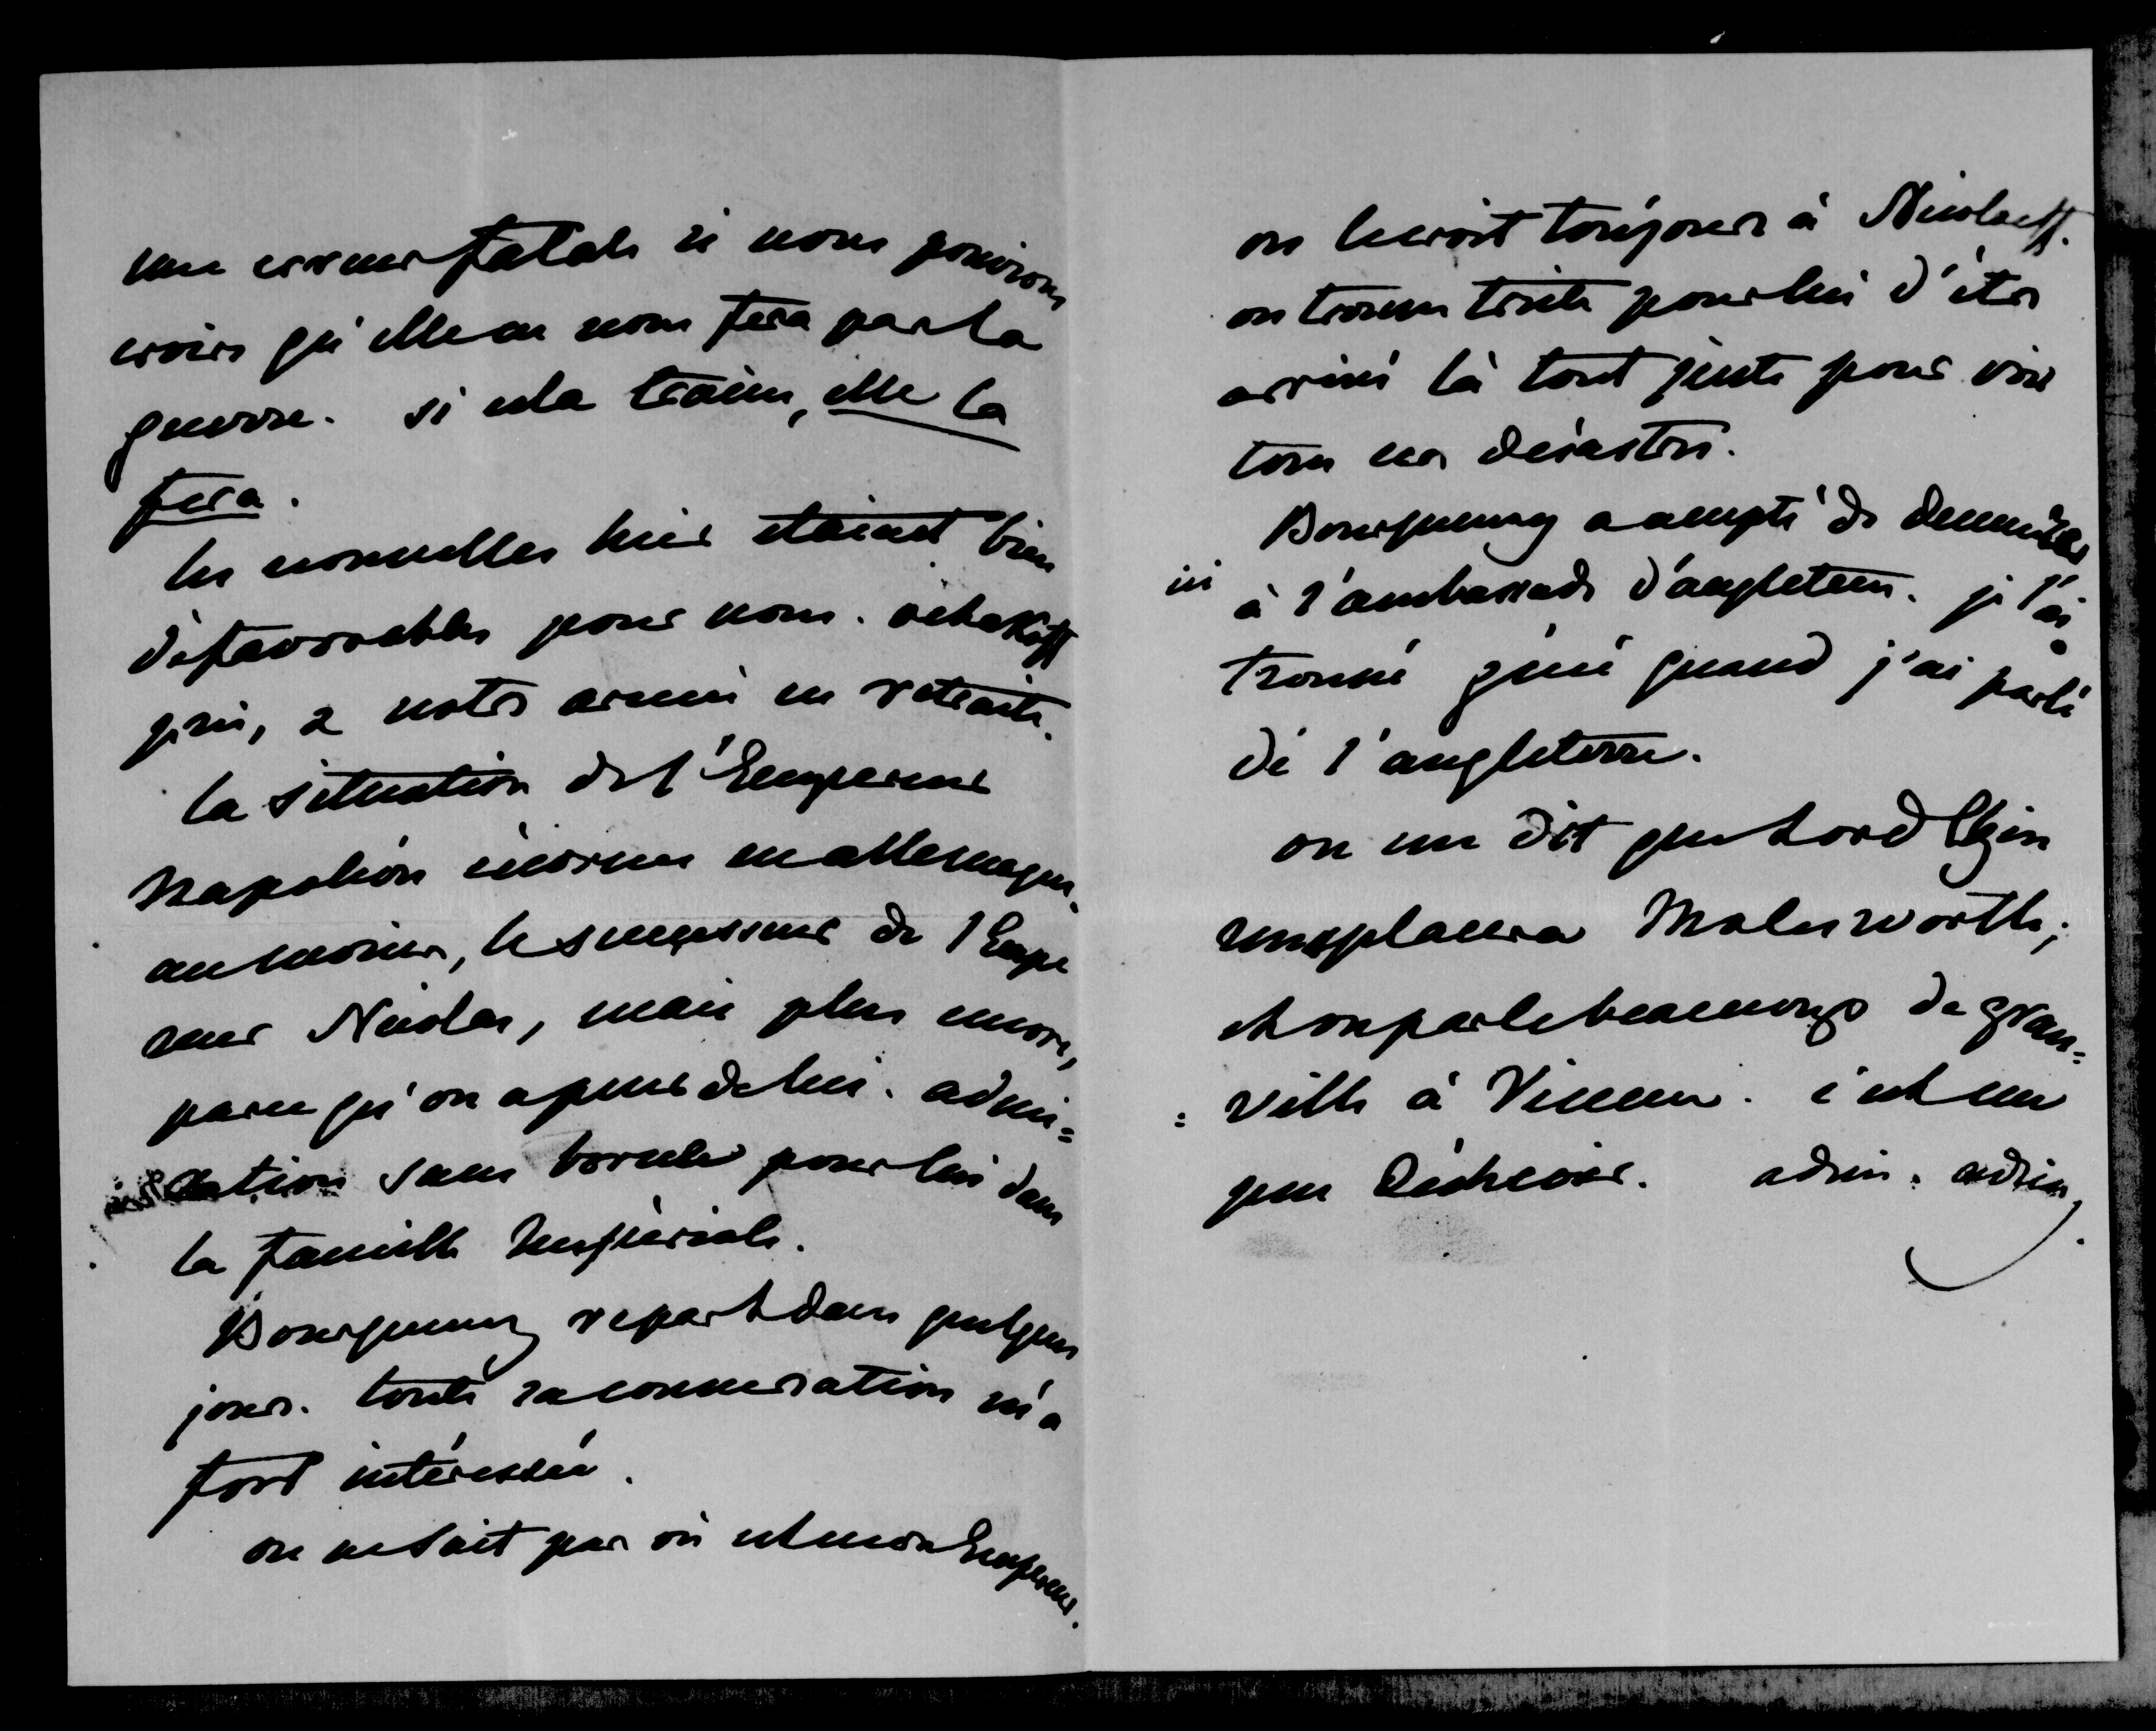 une erreur fatale si nous pouvions
croire qu'elle ne nous fera pas la
guerre. si cela traine, elle la
fera.
les nouvelles hier étaient bien
défavorables pour nous. otchakoff
pris, & notre armée en retraite.
la situation de l'Empereur
Napoléon énorme en allemagne.
au moins, le successeur de l'Empe
reur Nicolas, mais plus encore,
parce qu'on a peur de lui. admi=
ration sans bornes pour lui dans
la famille Impériale.
Bourqueney repart dans quelques
jours. toute sa conversation m'a
fort intéressée.
on ne sait pas où est mon Empereur.
on le croit toujours à Nicolaeff.
on trouve triste pour lui d'être
arrivé là tout juste pour voir
tous ces désastres.
Bourqueney a accepté de
ici à l'ambassade d'angleterre. je l'ai
trouvé gêné quand j'ai parlé
de l'angleterre.
on me dit que Lord Elgin
remplacera Molesworth;
et on parle beaucoup de gran=
=ville à Vienne. c'est un
peu déchoir. adieu. adieu.